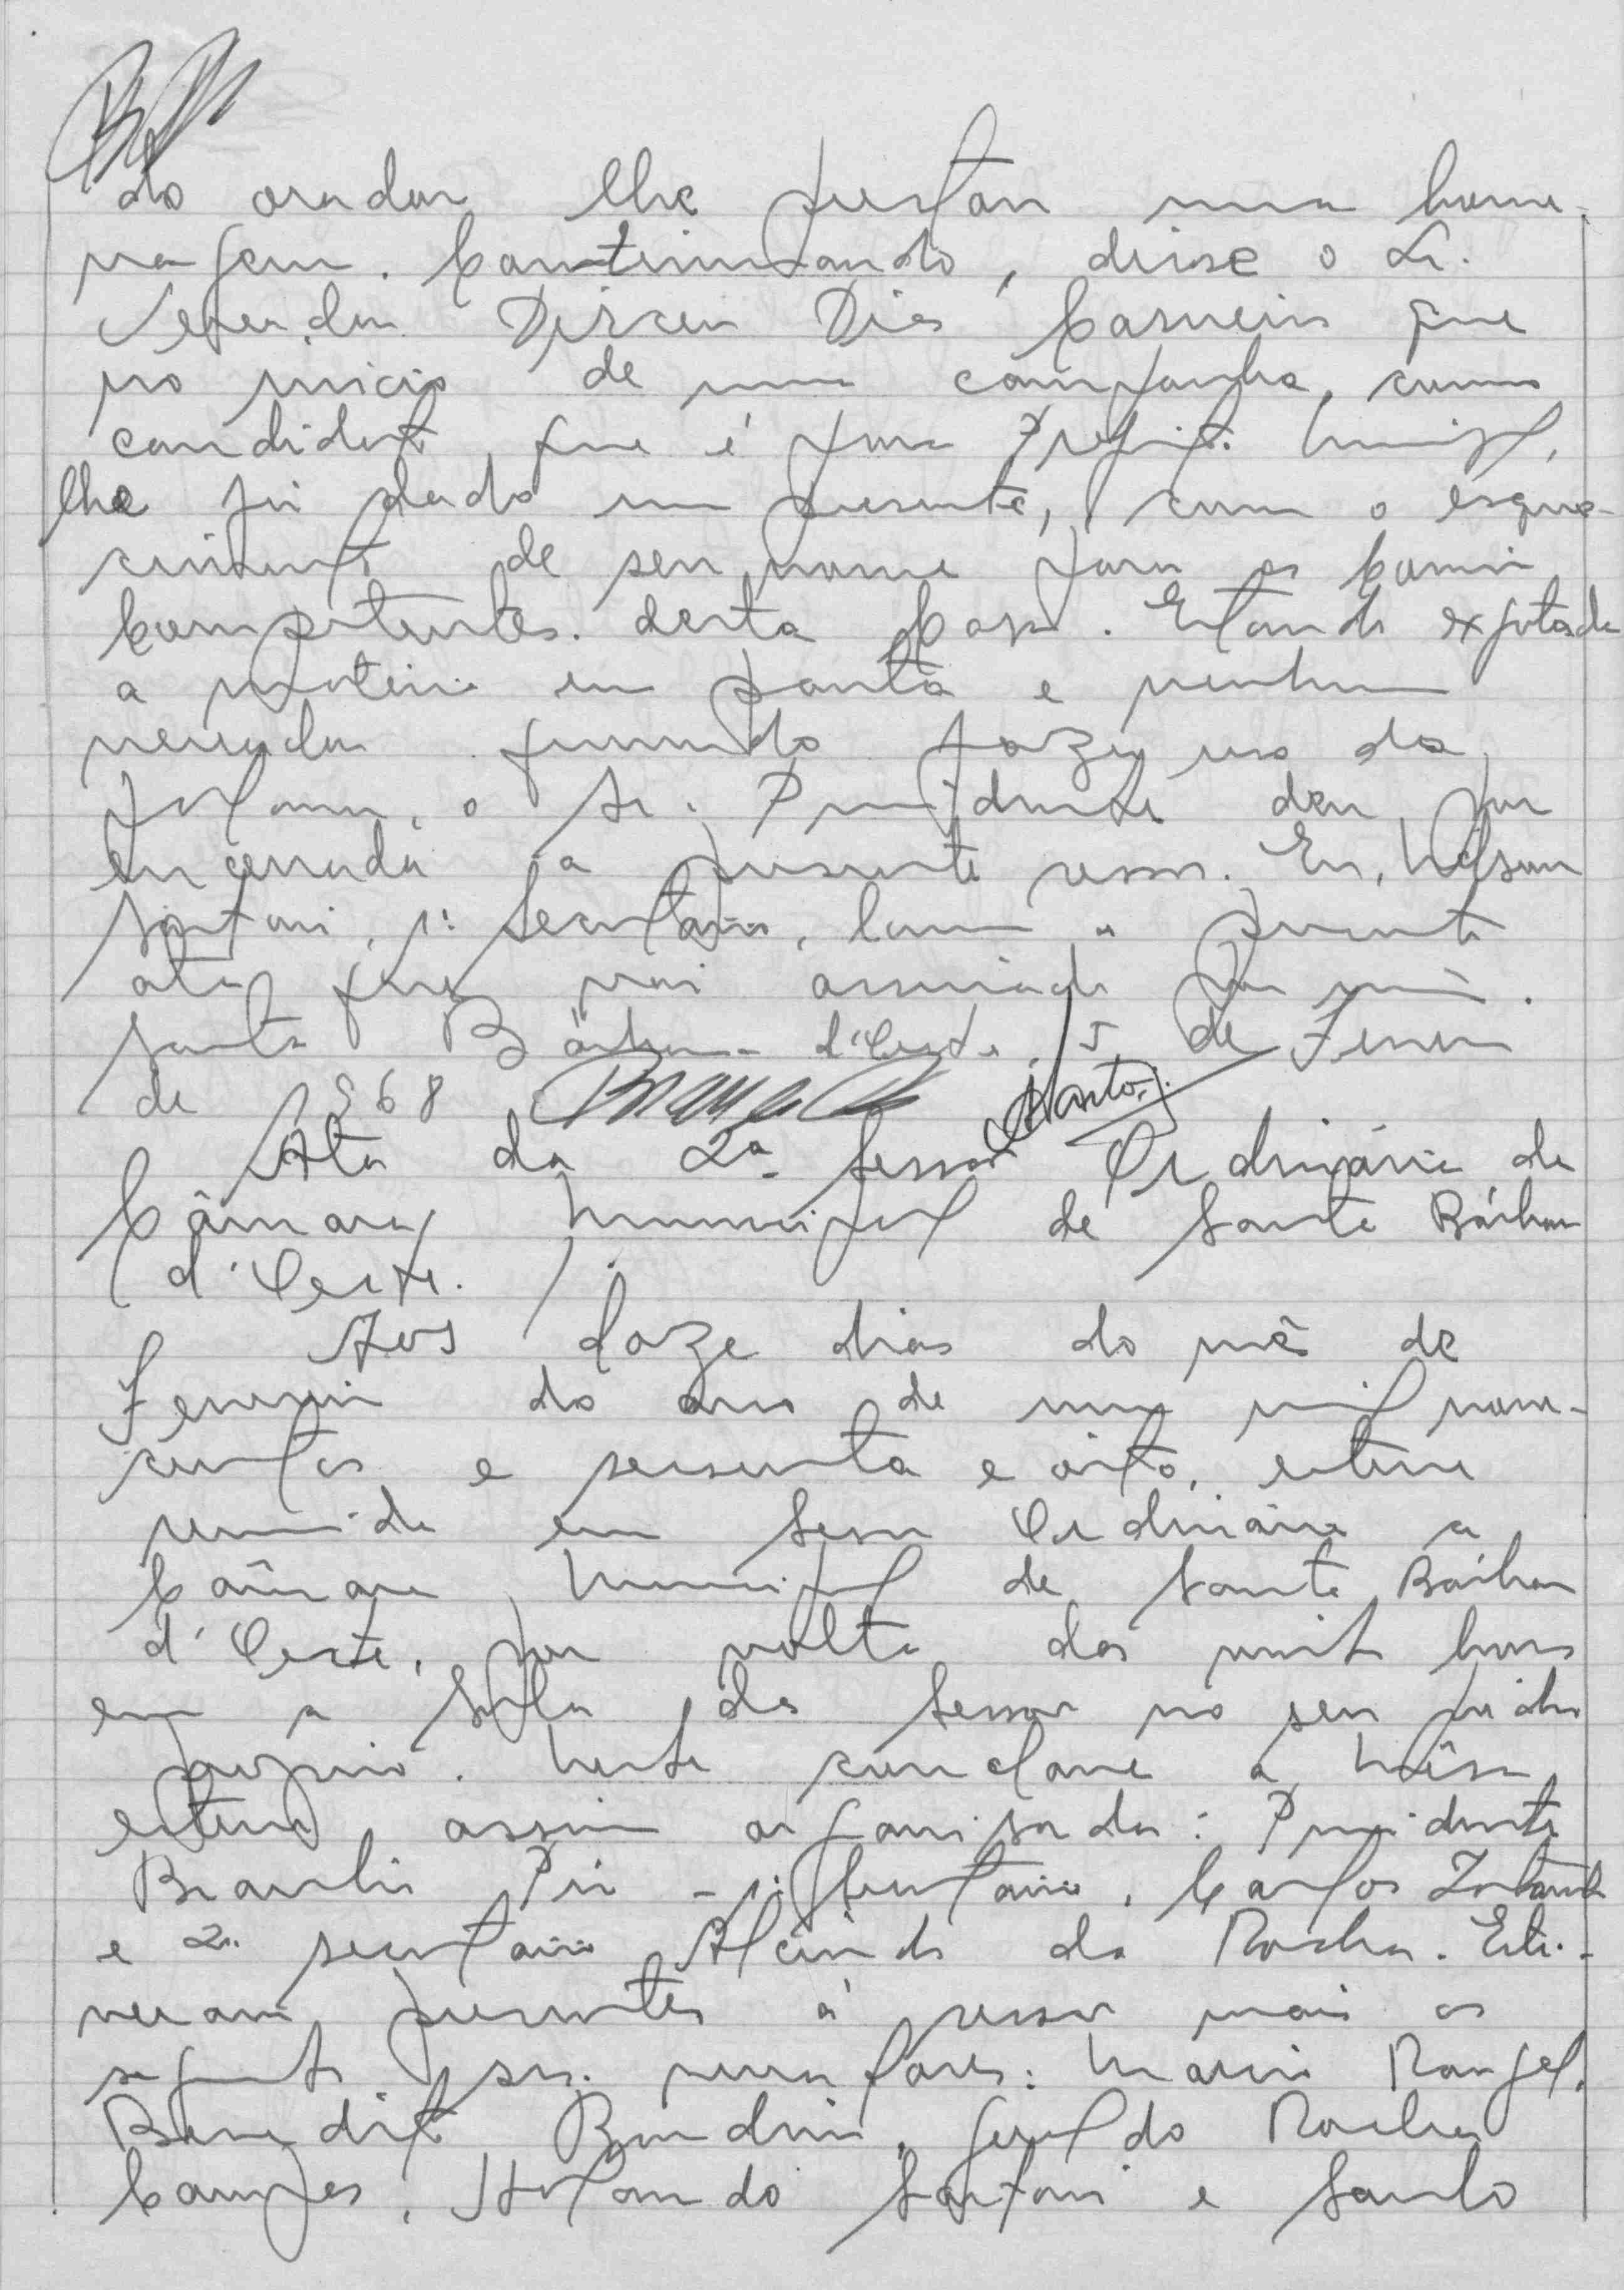 do orador lhe prestam uma home-
nagem. Continuando, disse o Sr.
Vereador Dirceu Dias Carneiro que
no inicio de uma campanha, como
candidato que é para Prefeito Municipal,
lhe foi dado um presente, com o esque-
cimento de seu nome para as Comissões
Competentes desta Casa. Estando exgotada
a matéria em pauta e nenhum
vereador querendo fazer uso da
palavra, o Sr. Presidente deu por
encerrada a presente sessão. Eu, Nilson
Sartori, 1º Secretário, lavrei a presente
ata que vai assinada por mim.
Santa Bárbara d'Oeste, 5 de Fevereiro
de 1968
Ata da 2ª Sessão Ordinária da
Câmara Municipal de Santa Bárbara
d'Oeste.
Aos doze dias do mês de
Fevereiro do ano de um mil nove-
centos e sessenta e oito, esteve
reunida em Sessão Ordinária a
Câmara Municipal de Santa Bárbara
d'Oeste, por volta das vinte horas
em a Sala das Sessões no seu prédio
próprio. Neste conclave a Mêsa
esteve assim organisada: Presidente
Braulio Pio - 1º Secretário, Carlos
e 2º secretário Alcindo da Rocha. Esti-
veram presentes à sessão mais os
seguintes srs. vereadores: Mario Rangel,
Benedito Bondim, Geraldo Rocha
Campos, Holando Sartori e Saulo